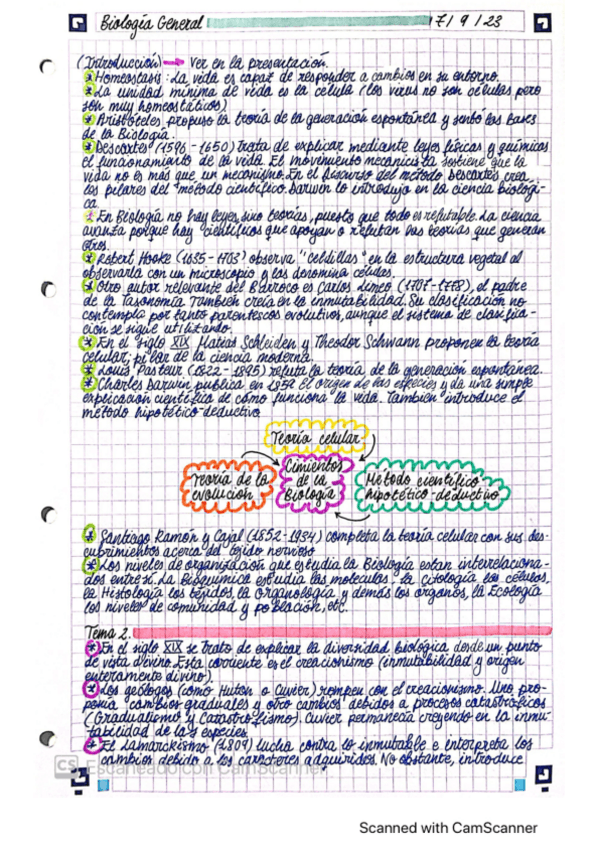 Biología General 7/9/23
(Introducción) → Ver en la presentación.
* Homeostasis: La vida es capaz de responder a cambios en su entorno.
* La unidad mínima de vida es la célula (los virus no son células pero
son muy homeostáticos)
* Aristóteles propuso la teoría de la generación espontánea y sentó las bases
de la Biología.
* Descartes (1596-1650) trata de explicar mediante leyes físicas y químicas
el funcionamiento de la vida. El movimiento mecanicista sostiene que la
vida no es más que un mecanismo. En el Discurso del método Descartes crea
los pilares del método científico. Darwin lo introdujo en la ciencia biológi-
ca.
* En Biología no hay leyes, sino teorías, puesto que todo es refutable. La ciencia
avanza porque hay científicos que apoyan o refutan las teorías que generan
otros.
* Robert Hooke (1635-1703) observa "celdillas" en la estructura vegetal al
observarla con un microscopio y las denomina células.
* Otro autor relevante del Barroco es Carlos Lineo (1707-1778), el padre
de la Taxonomía. También creía en la inmutabilidad. Su clasificación no
contempla por tanto parentescos evolutivos, aunque el sistema de clasifica-
ción se sigue utilizando.
* En el siglo XIX Matías Schleiden y Theodor Schwann proponen la teoría
celular, pilar de la ciencia moderna.
* Louis Pasteur (1822-1895) refuta la teoría de la generación espontánea.
* Charles Darwin publica en 1859 El origen de las especies y da una simple
explicación científica de cómo funciona la vida. También introduce el
método hipotético-deductivo
Teoría celular
Teoría de la
evolución
Cimientos
de la
Biología
Método científico
hipotético-deductivo
* Santiago Ramón y Cajal (1852-1934) completa la teoría celular con sus des-
cubrimientos acerca del tejido nervioso
* Los niveles de organización que estudia la Biología están interrelaciona-
dos entre sí. La Bioquímica estudia las moléculas, la citología las células,
la Histología los tejidos, la Organología y demás los órganos, la Ecología
los niveles de comunidad y población, etc.
Tema 2.
* En el siglo XIX se trató de explicar la diversidad biológica desde un punto
de vista divino. Esta corriente es el creacionismo (inmutabilidad y origen
enteramente divino).
* Los geólogos (como Huton o Cuvier) rompen con el creacionismo. Uno pro-
ponía cambios graduales y otro cambios debidos a procesos catastróficos
(Gradualismo y Catastrofismo). Cuvier permanecía creyendo en la inmu-
tabilidad de las especies.
* El Lamarckismo (1809) lucha contra lo inmutable e interpreta los
cambios debido a los caracteres adquiridos. No obstante, introduce
CS Escaneado con CamScanner
Scanned with CamScanner